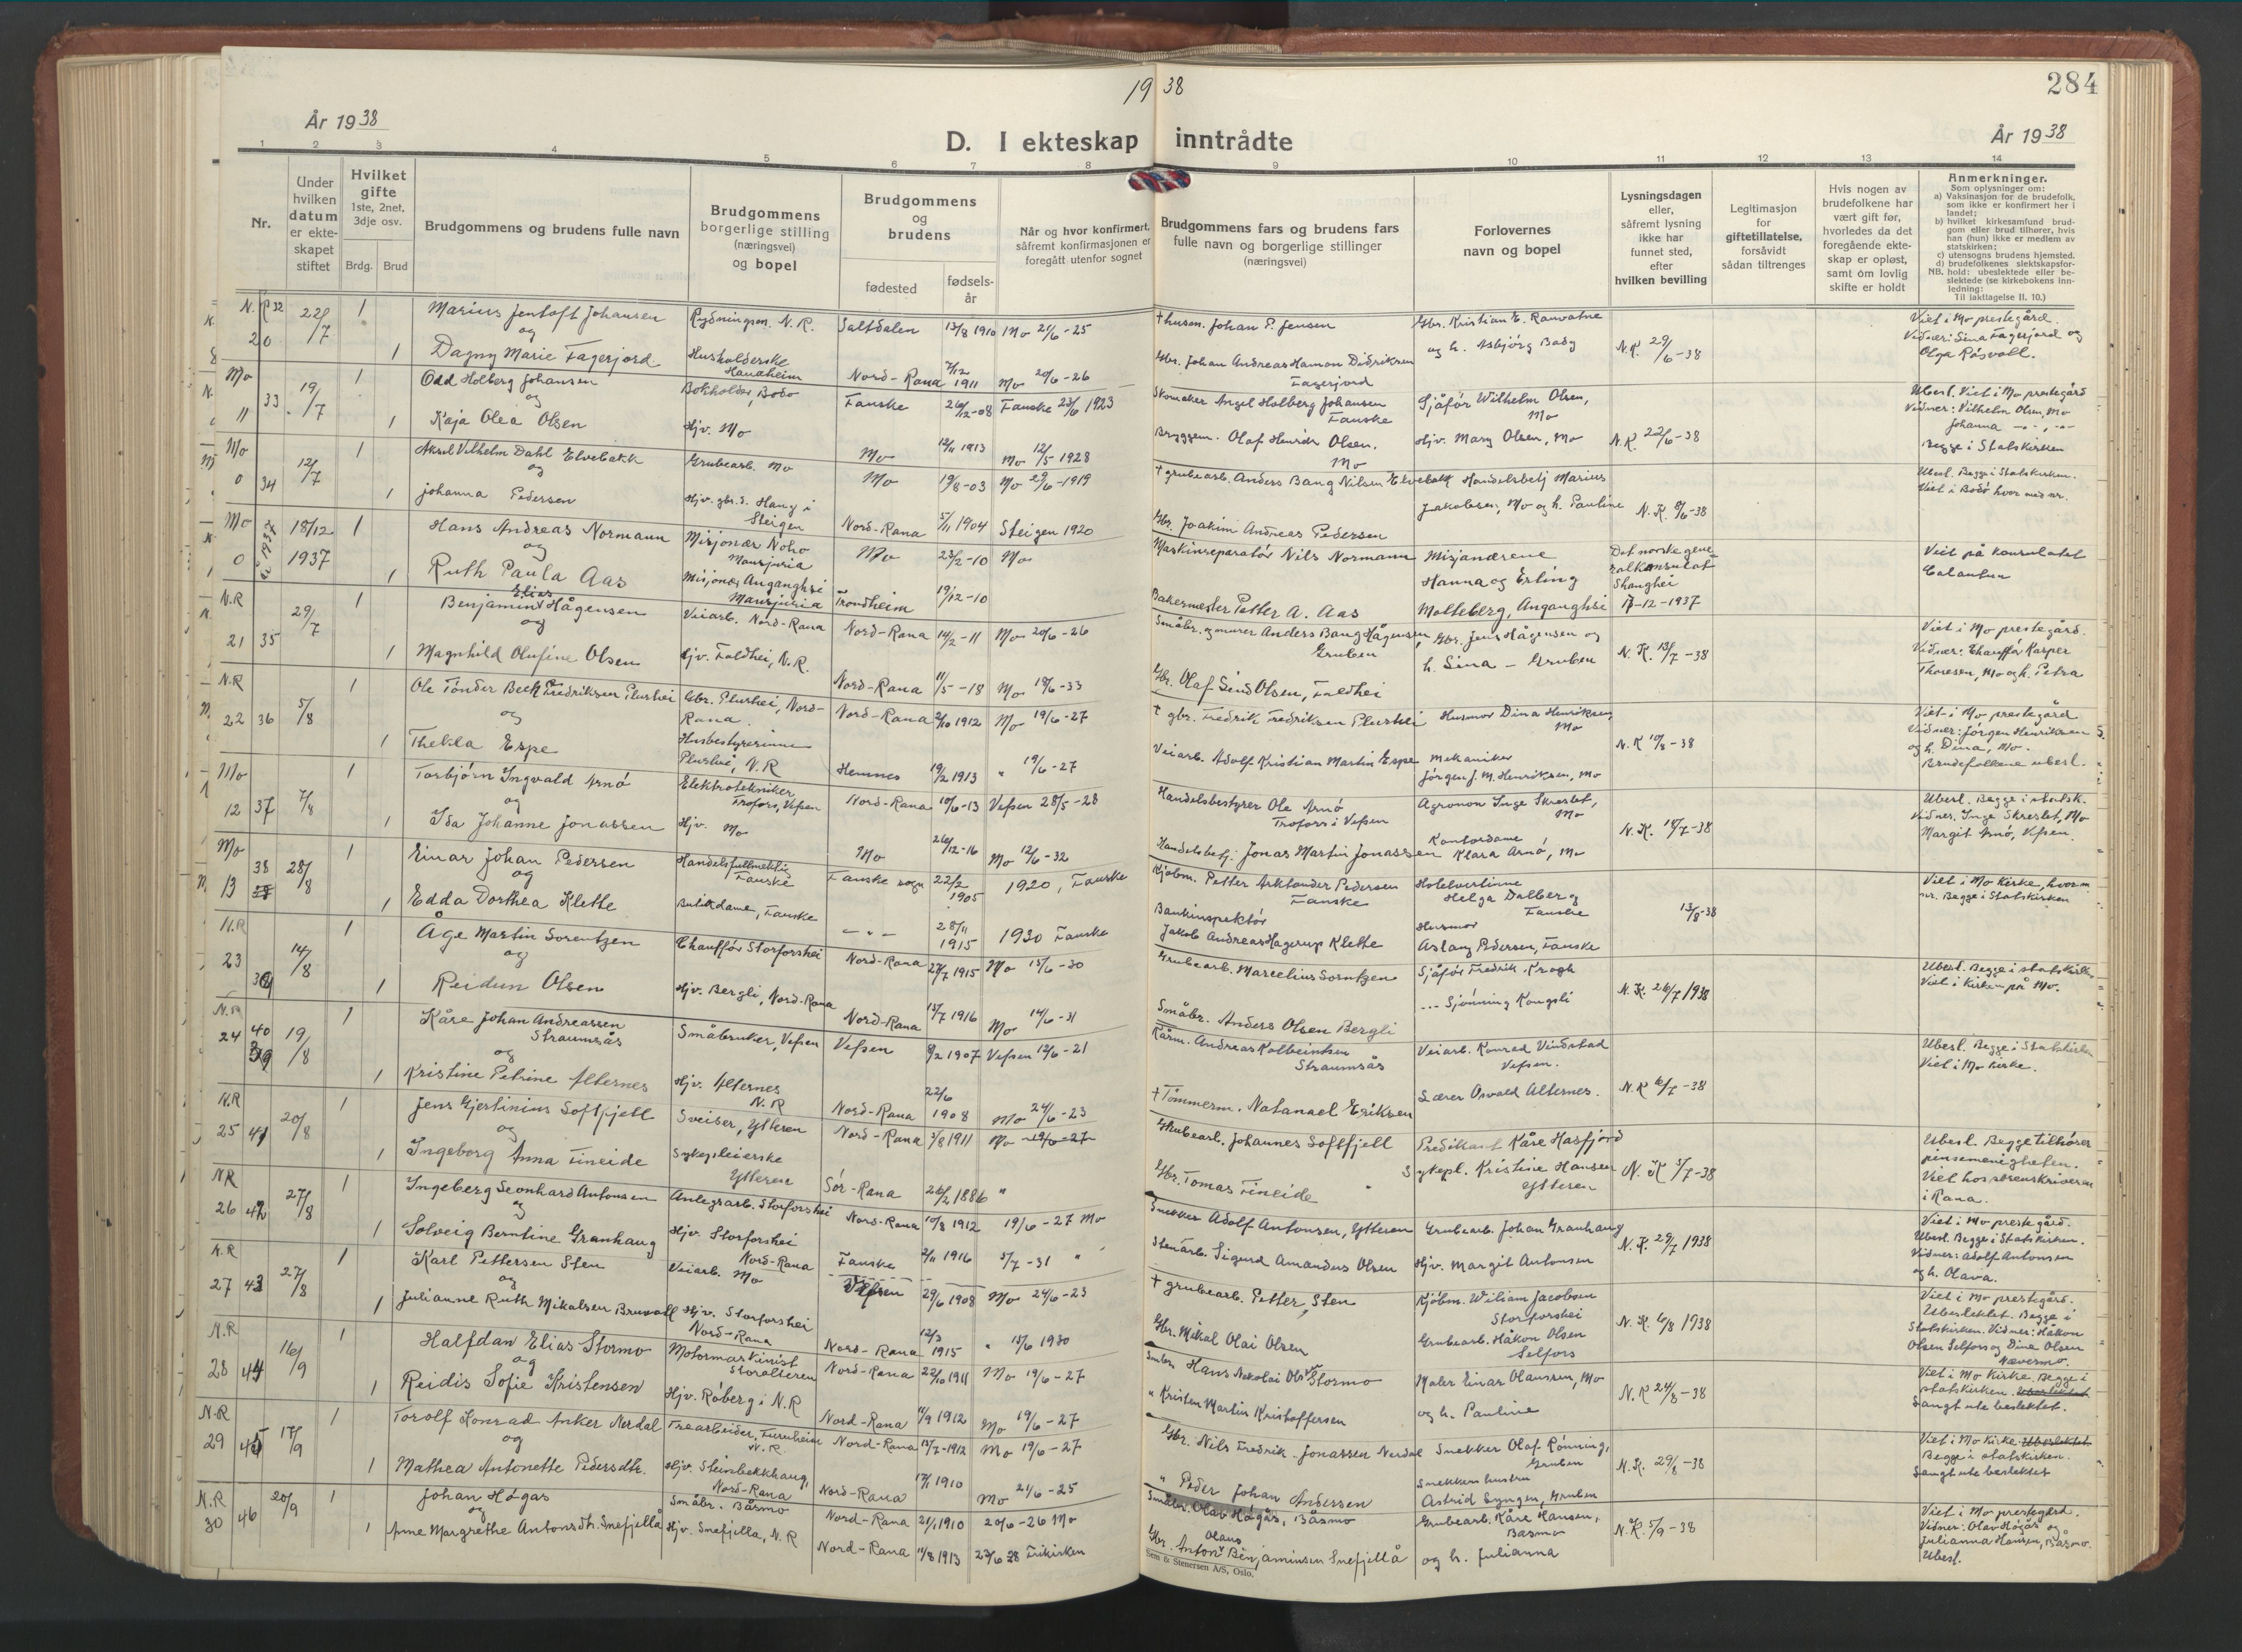 284
19 38
År 1938
D. I ekteskap inntrådte
År 1938
1 2 3 4 5 6 7 8 9 10 11 12 13 14
Nr.
Under hvilken datum er ekte-skapet stiftet
Hvilket gifte 1ste, 2net, 3dje osv.
Brdg. Brud
Brudgommens og brudens fulle navn
Brudgommens borgerlige stilling (næringsvei) og bopel
Brudgommens og brudens
fødested
fødsels-år
Når og hvor konfirmert, såfremt konfirmasjonen er foregått utenfor sognet
Brudgommens fars og brudens fars fulle navn og borgerlige stillinger (næringsvei)
Forlovernes navn og bopel
Lysningsdagen eller, såfremt lysning ikke har funnet sted, efter hvilken bevilling
Legitimasjon for giftetillatelse, forsåvidt sådan tiltrenges
Hvis nogen av brudefolkene har vært gift før, hvorledes da det foregående ekte-skap er opløst, samt om lovlig skifte er holdt
Anmerkninger.
Som oplysninger om:
a) Vaksinasjon for de brudefolk, som ikke er konfirmert her i landet;
b) hvilket kirkesamfund brud-gom eller brud tilhører, hvis han (hun) ikke er medlem av statskirken;
c) utensogns brudens hjemsted.
d) brudefolkenes slektskapsfor-
NB. hold: ubeslektede eller be-slektede (se kirkebokens inn-ledning:
Til iakttagelse II. 10.)
N.R 32 20 22/7 1 Marius Jentoft Johansen Rydningsm. N.R. Saltdalen 13/8 1910 Mo 21/6-25 † husm. Johan P. Jensen Gbr. Kristian E. Ranvatne Viet i Mo prestegård.
og h. Asbjørg Bady N.K. 29/6-38 Vidner: Sina Fagerjord og
og 1 Dagny Marie Fagerjord Husholderske Nord-Rana 7/12 1911 Mo 20/6-26 Gbr. Johan Andreas Hamon Didriksen Fagerjord Olga Røsvoll.
Mo 33 11 19/7 1 Odd Holberg Johansen Bokholder, Bodø Fauske 26/12-08 Fauske 23/6 1923 Skomaker Angel Holberg Johansen Fauske Sjåfør Wilhelm Olsen, Mo Ubesl. Viet i Mo prestegård
Vidner: Vilhelm Olsen, Mo
og 1 Kaja Olea Olsen Hjv. Mo Mo 12/11 1913 Mo 12/5 1928 Bryggem. Olaf Henrik Olsen. Mo Hjv. Mary Olsen, Mo N.K. 22/6-38 Johanna -"-, -"-
Begge i Statskirken
Mo 34 0 12/7 1 Aksel Vilhelm Dahl Elvebakk Grubearb. Mo Mo 19/8-03 Mo 29/6-1919 † grubearb. Anders Bang Nilsen Elvebakk Handelsbetj Marius Ubesl. Begge i Statskirken.
og 1 Johanna Pedersen Hjv. gbr.d. Haug i Steigen Nord-Rana 5/11 1904 Steigen 1920 Gbr. Joakim Andreas Pedersen Jakobsen, Mo og h. Pauline N.K. 8/6-38 Viet i Bodø hvor med nr.
Mo 0 18/12 1937 1 Hans Andreas Normann Misjonær Noho Mansjuria Mo 23/2-10 Mo Maskinreparatør Nils Normann Misjonærene Det norske gene-ralkonsulat Shanghei Viet på konsulatet
og 1 Ruth Paula Aas Misjonær Anganghsi Mansjuria Trondheim 19/12-10 Bakermester Petter A. Aas Hanna og Erling Molteberg, Anganghsi 17-12-1937
N.R 21 35 29/7 1 Benjamin Elias Hågensen Veiarb. Nord-Rana Nord-Rana 14/2-11 Mo 20/6-26 Småbr. og murer Anders Bang Hågensen, Gruben Gbr. Jens Hågensen og Viet i Mo prestegård.
og 1 Magnhild Olufine Olsen Hjv. Faldhei, N.R. Nord-Rana 11/5-18 Mo 18/6-33 Gbr. Olaf Sund Olsen, Faldhei h. Sina - Gruben N.K. 13/7-38 Vidner: Chauffør Kasper
Thoresen, Mo og h. Petra
N.R 22 36 5/8 1 Ole Tønder Beck Fredriksen Plurhei Gbr. Plurhei, Nord-Rana. Nord-Rana 2/10 1912 Mo 19/6-27 † gbr. Fredrik Fredriksen Plurhei Husmor Dina Henriksen, Mo Viet i Mo prestegård
Vidner: Jørgen Henriksen
og 1 Thekla Espe Husbestyrerinne Plurhei, N.R Hemnes 19/2 1913 " 19/6-27 Veiarb. Adolf Kristian Martin Espe Mekaniker Jørgen J. M. Henriksen, Mo N.K 10/8-38 og h. Dina, Mo.
Brudefolkene ubesl.
Mo 12 37 7/8 1 Torbjørn Ingvald Arnø Elektrotekniker Trofors, Vefsen Nord-Rana 10/6-13 Vefsen 28/5-28 Handelsbestyrer Ole Arnø Trofors i Vefsen Agronom Inge Skreslet, Mo Ubesl. Begge i statsk.
Vidner. Inge Skreslet, Mo
og 1 Ida Johanne Jonassen Hjv. Mo Mo 26/12-16 Mo 12/6-32 Handelsbetj. Jonas Martin Jonassen Kontordame Klara Arnø, Mo N.K. 18/7-38 Margit Arnø, Vefsen.
Mo 13 38 28/8 1 Einar Johan Pedersen Handelsfullmektig Fauske Fauske sogn 22/2 1905 1920, Fauske Kjøbm. Petter Arktander Pedersen Fauske Hotelvertinne Helga Dalberg Fauske Viet i Mo Kirke, hvor m
nr. Begge i Statskirken
og 1 Edda Dorthea Klette Butikdame, Fauske -"- 28/11 1915 1930 Fauske Bankinspektør Jakob Andreas Hagerup Klette Husmor Aslaug Pedersen, Fauske 13/8-38
N.R 23 39 14/8 1 Åge Martin Sorentzen Chauffør Storforshei Nord-Rana 27/7 1915 Mo 15/6-30 Grubearb. Marcelius Sorntzen Sjåfør Fredrik Krogh Ubesl. Begge i statskirk.
Viet i Kirken på Mo.
og 1 Reidun Olsen Hjv. Bergli, Nord-Rana Nord-Rana 15/7 1916 Mo 14/6-31 Småbr. Anders Olsen Bergli --- Sjønning Kongsli N.K. 26/7 1938
N.R 24 40 19/8 1 Kåre Johan Andreassen Straumsås Småbruker, Vefsen Vefsen 9/2 1907 Vefsen 12/6-21 Kårm. Andreas Kolbeintsen Straumsås Veiarb. Konrad Vindstad Vefsen. Ubesl. Begge i Statskirken
Viet i Mo Kirke.
og 1 Kristine Petrine Alternes Hjv. Alternes N.R Nord-Rana 22/6 1908 Mo 24/6-23 † Tømmerm. Natanael Eriksen Lærer Osvald Alternes. N.K 16/7-38
N.R 25 41 20/8 1 Jens Gjertinius Softfjell Sveiser, Ytteren Nord-Rana 3/8 1911 Mo 19/6-27 Grubearb. Johannes Softfjell Predikant Kåre Hasfjord Ubesl. Begge tilhører
pinsemenigheten.
og 1 Ingeborg Anna Fineide Sykepleierske Ytteren Sør-Rana 26/2 1886 " Gbr. Tomas Fineide Sykepl. Kristine Hansen Ytteren N.K 5/7-38 Viet hos sorenskriveren
i Rana.
NR 26 42 27/8 1 Ingeberg Leonhard Antonsen Anlegsarb. Storforshei Nord-Rana 10/8 1912 19/6-27 Mo Snekker Adolf Antonsen, Ytteren Grubearb. Johan Granhaug Viet i Mo prestegård.
Ubesl. Begge i Statskirken.
og 1 Solveig Berntine Granhaug Hjv. Storforshei Nord-Rana Fauske 2/11 1916 5/7-31 " Stenarb. Sigurd Amandus Olsen Hjv. Margit Antonsen N.K. 29/7 1938 Vidner: Adolf Antonsen
og h. Olava.
N.R 27 43 27/8 1 Karl Pettersen Sten Veiarb. Mo Vefsen 29/6 1908 Mo 24/6-23 † grubearb. Petter Sten Kjøbm. Wiliam Jacobsen Storforshei Viet i Mo prestegård.
Ubeslektet. Begge i
og 1 Julianne Ruth Mikalsen Brunvoll Hjv. Storforshei Nord-Rana Nord-Rana 12/3 1915 " 15/6 1930 Gbr. Mikal Olai Olsen Grubearb. Håkon Olsen Selfors N.K. 6/8 1938 Statskirken. Vidner: Håkon
Olsen Selfors og Dina Olsen
Nævermo.
N.R 28 44 16/9 1 Halfdan Elias Stormo Motormaskinist Storalteren Nord-Rana 22/10 1911 Mo 19/6-27 Småbr. Hans Nikolai Olsen Stormo Maler Einar Olaussen, Mo Viet i Mo Kirke. Begge i
statskirken. Ubeslektet
og 1 Reidis Sofie Kristensen Hjv. Røberg i N.R Nord-Rana 11/9 1912 Mo 19/6-27 " Kristen Martin Kristoffersen og h. Pauline N.K 24/8-38 Langt ute beslektet.
N.R 29 45 17/9 1 Torolf Konrad Anker Nerdal Trearbeider, Furuheim N.R. Nord-Rana 13/7-1912 Mo 19/6-27 Gbr. Nils Fredrik Jonassen Nerdal Snekker Olaf Rønning, Gruben Viet i Mo Kirke. Ubeslektet.
Begge i statskirken.
og 1 Mathea Antonette Pedersdtr. Hjv. Steinbekkhaug, Nord-Rana Nord-Rana 17/1 1910 Mo 21/6-25 " Peder Johan Andersen Snekkerhustru Astrid Lyngen, Gruben N.K. 29/8-38 Langt ute beslektet
N.R 30 46 20/9 1 Johan Høgås Småbr. Båsmo Nord-Rana 21/1 1910 20/6-26 Mo Småbr. Olav Høgås, Båsmo Grubearb. Kåre Hansen, Båsmo Viet i Mo prestegård.
Vidner: Olav Høgås og
og 1 Arne Margrethe Antonsdtr. Snefjellå Hjv. Snefjella, N.R Nord-Rana 11/8 1913 23/6 28 Frikirken Gbr. Anton Olaus Benjaminsen Snefjellå og h. Julianna N.K. 5/9-38 Julianna Hansen, Båsmo.
Ubesl.
Sem & Stenersen A/S, Oslo.